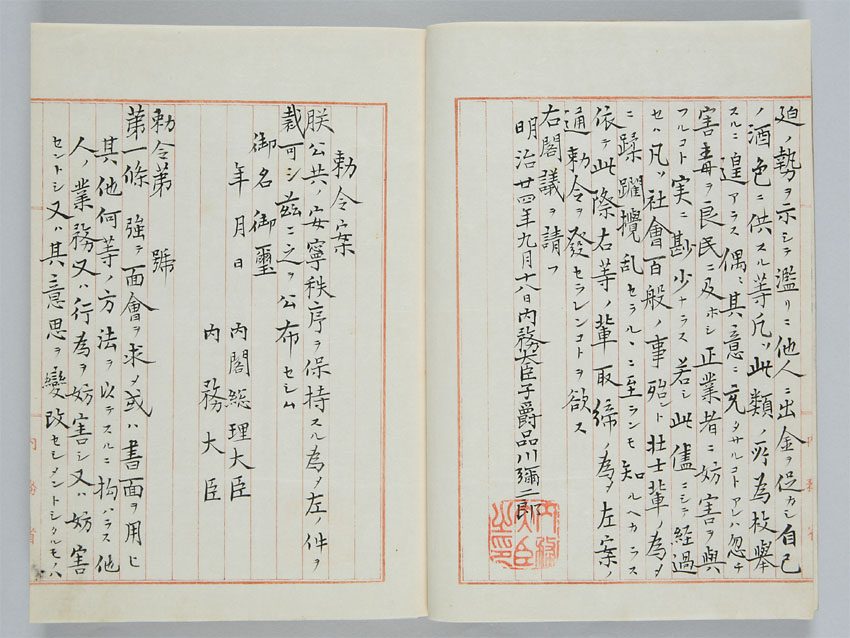 迫ノ勢ヲ示シテ濫リニ他人ニ出金ヲ促カシ自己
ノ酒色ニ供スル等凡ソ此類ノ所為枚挙
スルニ遑アラス偶ニ其意ニ充タサルコトアレハ忽チ
害毒ヲ良民ニ及ホシ正業者ニ妨害ヲ與
フルコト実ニ尠少ナラス若シ此儘ニシテ経過
セハ凡ソ社會百般ノ事殆ント壮士輩ノ為メ
ニ蹂躙攪乱セラルヽニ至ランモ知ルヘカラス
依テ此際右等ノ輩取締ノ為メ左案ノ
通勅令ヲ発セラレンコトヲ欲ス
右閣議ヲ請フ
明治廿四年九月十八日内務大臣子爵品川彌二郎
内務大臣之印
勅令案
朕公共ノ安寧秩序ヲ保持スル為メ左ノ件ヲ
裁可シ茲ニ之ヲ公布セシム
御名御璽
年月日
内閣総理大臣
内務大臣
勅令第 號
第一條 強テ面會ヲ求メ或ハ書面ヲ用ヒ
其他何等ノ方法ヲ以テスルニ拘ハラス他
人ノ業務又ハ行為ヲ妨害シ又ハ妨害
セントシ又ハ其意思ヲ變改セシメントシタルモノハ
内務省